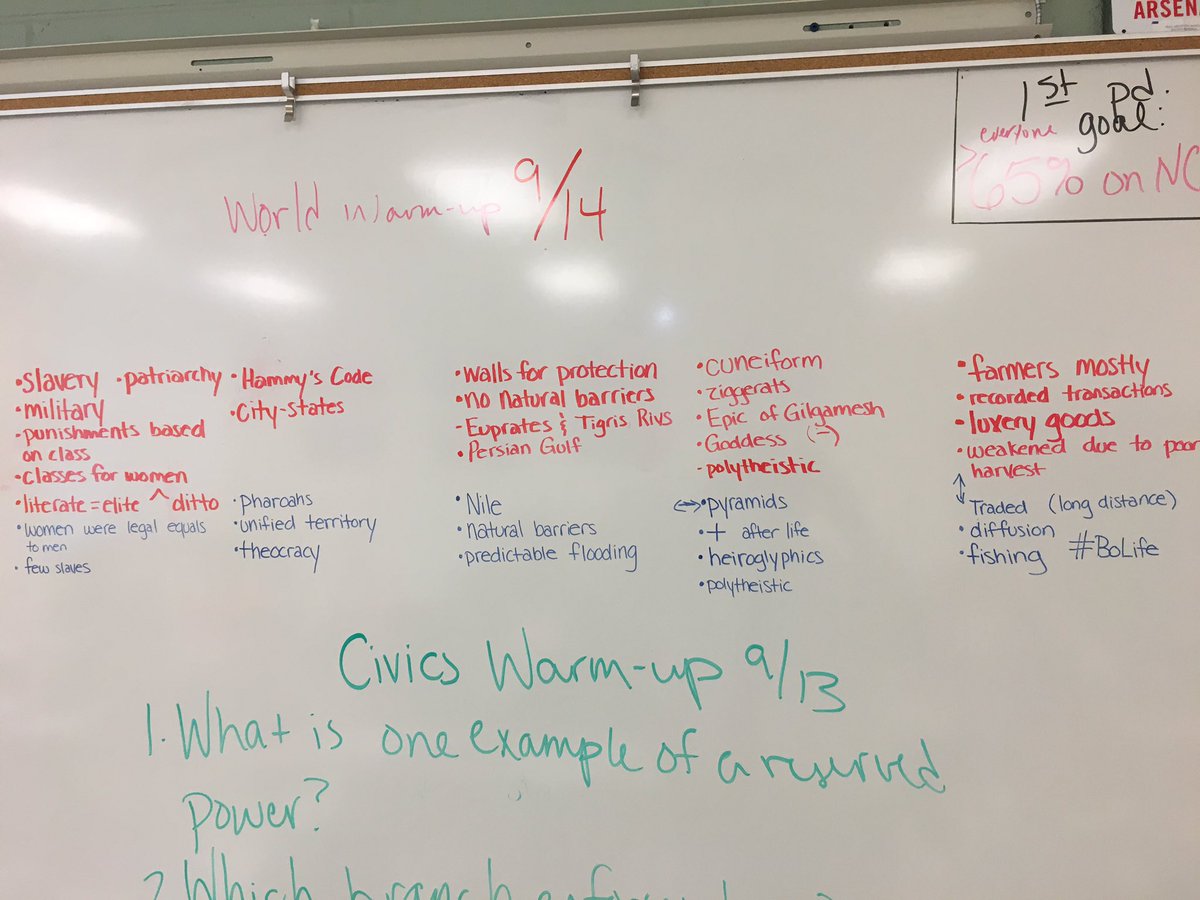 ARSEN
1st pd.
goal:
everyone
>65% on NC
World Warm-up 9/14
•slavery •patriarchy •Hammy's Code
•military •City-states
-punishments based
on class
•classes for women
•literate = elite ^ ditto
•women were legal equals
to men
• few slaves
•pharoahs
•unified territory
•theocracy
•walls for protection
•no natural barriers
-Euprates & Tigris Rivs
•Persian Gulf
•Nile
•natural barriers
•predictable flooding
•cuneiform
•ziggerats
•Epic of Gilgamesh
•Goddess (-)
-polytheistic
↔•pyramids
•+ after life
•heiroglyphics
•polytheistic
•farmers mostly
• recorded transactions
•luxery goods
•weakened due to poor
harvest
↕ Traded (long distance)
•diffusion
•fishing #BoLife
Civics Warm-up 9/13
1. What is one example of a reserved
power?
2. Which branch